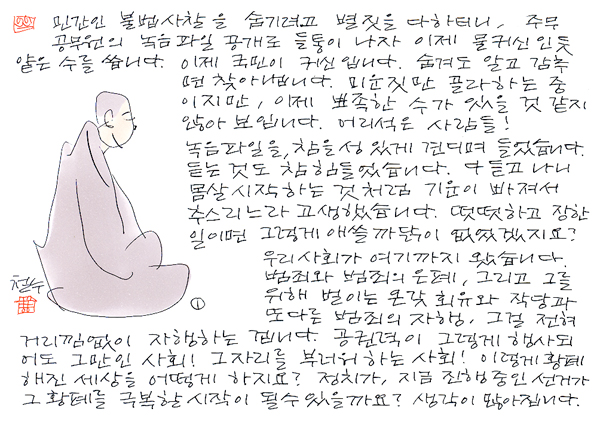 민간인 불법사찰을 숨기려고 별짓을 다하더니, 주무
공무원의 녹음파일 공개로 들통이 나자 이제 물귀신인듯
얕은 수를 씁니다. 이제 국민이 귀신입니다. 숨겨도 알고 감추
면 찾아냅니다. 미운짓만 골라하는 중
이지만, 이제 뾰족한 수가 있을 것 같지
않아 보입니다. 어리석은 사람들!
녹음파일을, 참을성 있게 견디며 들었습니다.
듣는 것도 참 힘들었습니다. 다 듣고 나니
몸살 시작하는 것처럼 기운이 빠져서
추스리느라 고생했습니다. 떳떳하고 장한
일이면 그렇게 애쓸 까닭이 없었겠지요?
우리사회가 여기까지 왔습니다.
범죄와 범죄의 은폐, 그리고 그를
위해 벌이는 온갖 회유와 작당과
또다른 범죄의 자행, 그걸 전혀
거리낌없이 자행하는 겁니다. 공권력이 그렇게 행사되
어도 그만인 사회! 그 자리를 부러워하는 사회! 이렇게 황폐
해진 세상을 어떻게 하지요? 정치가, 지금 진행중인 선거가
그 황폐를 극복한 시작이 될 수 있을까요? 생각이 많아집니다.
철수